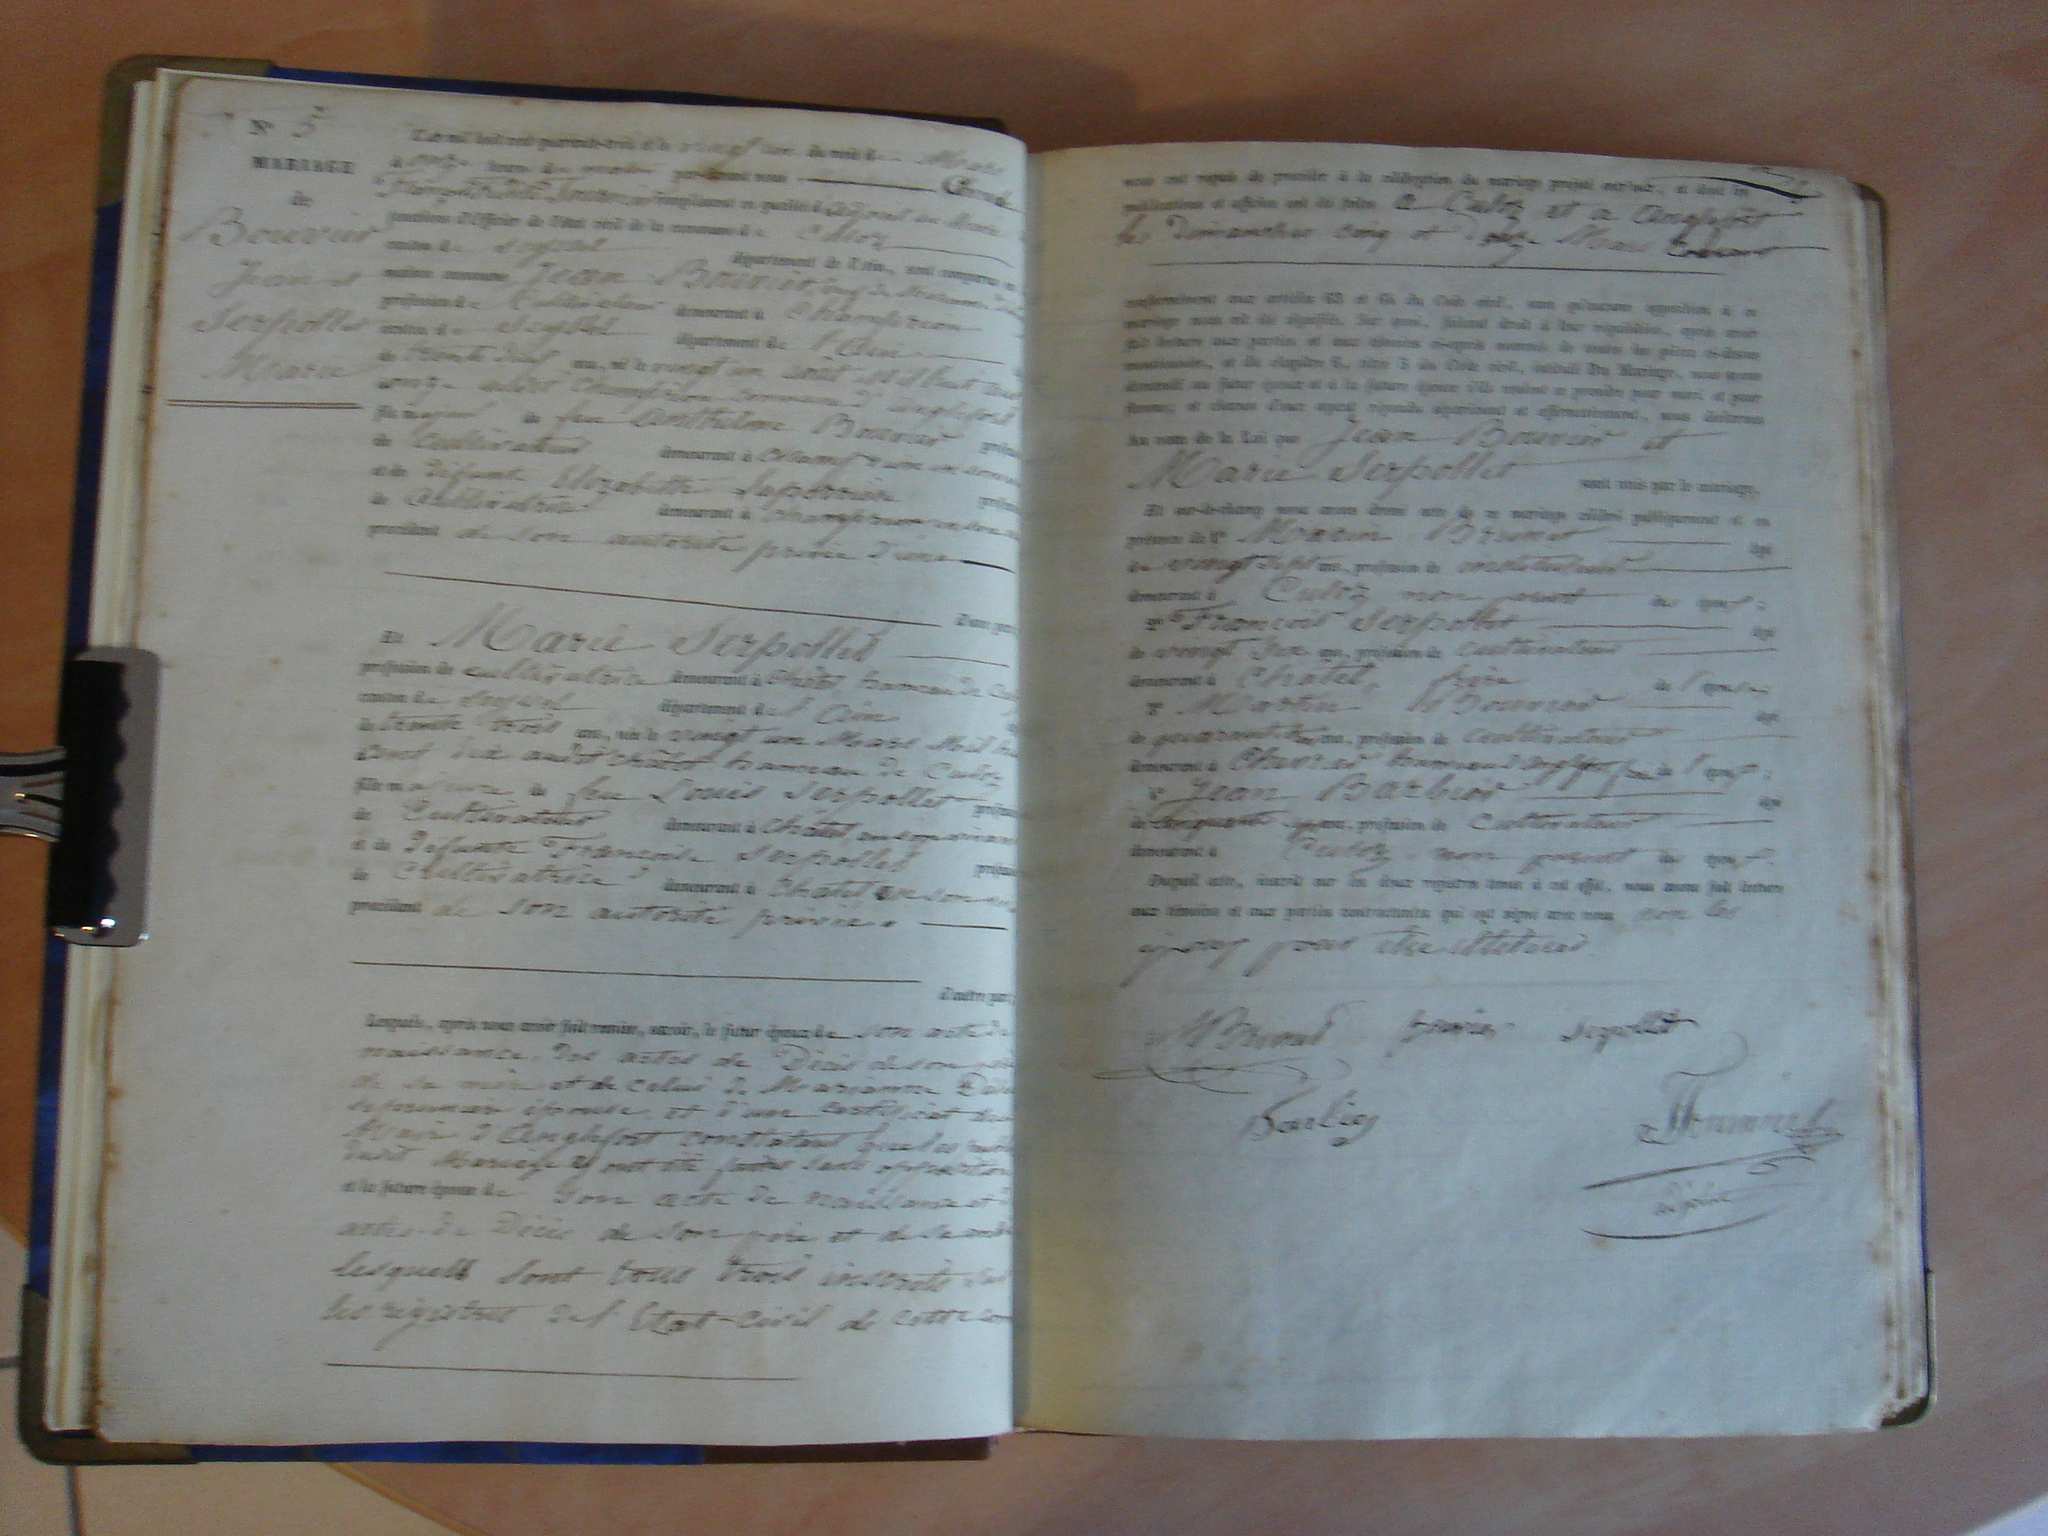 N° 5
MARIAGE
de
Bouvier
Jean et
Serpollet
Marie
L'an mil huit cent quarante-trois et le vingt un du mois de Mars
à onze heures du matin par-devant nous
remplissant en qualité d'adjoint au Maire
fonctions d'Officier de l'état civil de la commune de Culoz
canton de Seyssel département de l'Ain, sont comparus en
maison commune Jean Bouvier
profession de Cultivateur demeurant à Champrion
canton de Seyssel département de l'Ain
de trente ans, né le vingt un aout mil huit cent
onze audit Champrion commune d'anglefort
fils majeur de feu Anthelme Bouvier
de Cultivateur demeurant à
et de défunte Elizabeth
de Cultivatrice demeurant à
procédant de son autorité privée d'une
D'une part,
Et Marie Serpollet
profession de cultivatrice demeurant à Châtel hameau de
canton de Seyssel département de l'Ain
de trente trois ans, née le vingt un Mars Mil
cent dix audit châtel hameau de Culoz
fille majeure de feu Louis Serpollet
de Cultivateur demeurant à châtel en son vivant
et de défunte Françoise Serpollet
de Cultivatrice demeurant à Chatel
procédant de son autorité privée
D'autre part,
Lesquels, après nous avoir fait remise, savoir, le futur époux de son acte de
naissance, des actes de Décès de son père
de sa mère et de celui de Marianne
sa première épouse, et d'un certificat du
Maire d'Anglefort constatant que les
dudit Mariage y ont été faites sans opposition
et la future épouse de son acte de naissance et
actes de Décès de son père et de sa mère
lesquels sont tous trois inscrits sur
les régistres de l'Etat-Civil de cette
nous ont requis de procéder à la célébration du mariage projeté entr'eux, et dont les
publications et affiches ont été faites à Culoz et à anglefort
les Dimanches cinq et douze Mars courant
conformément aux articles 63 et 64 du Code civil, sans qu'aucune opposition à ce
mariage nous ait été signifiée. Sur quoi, faisant droit à leur réquisition, après avoir
fait lecture aux parties et aux témoins ci-après nommés de toutes les pièces ci-dessus
mentionnées, et du chapitre 6, titre 5 du Code civil, intitulé Du Mariage, nous avons
demandé au futur époux et à la future épouse s'ils veulent se prendre pour mari et pour
femme; et chacun d'eux ayant répondu séparément et affirmativement, nous déclarons
Au nom de la Loi que Jean Bouvier et
Marie Serpollet sont unis par le mariage,
Et sur-le-champ nous avons dressé acte de ce mariage célébré publiquement et en
présence de 1° Marin Brunet âgé
de vingt sept ans, profession de instituteur
demeurant à Culoz non parent des époux;
2° François Serpollet âgé
de vingt six ans, profession de cultivateur
demeurant à Châtel, frère de l'épouse
3° Martin Bouvier âgé
de quarante ans, profession de cultivateur
demeurant à hameau d'anglefort de l'époux;
4° Jean Barbier âgé
de cinquante ans, profession de Cultivateur
demeurant à Culoz non parent des époux.
Duquel acte, inscrit sur les deux registres tenus à cet effet, nous avons fait lecture
aux témoins et aux parties contractantes qui ont signé avec nous non les
époux pour être illétérés.
Serpollet
Barbier
adjoint